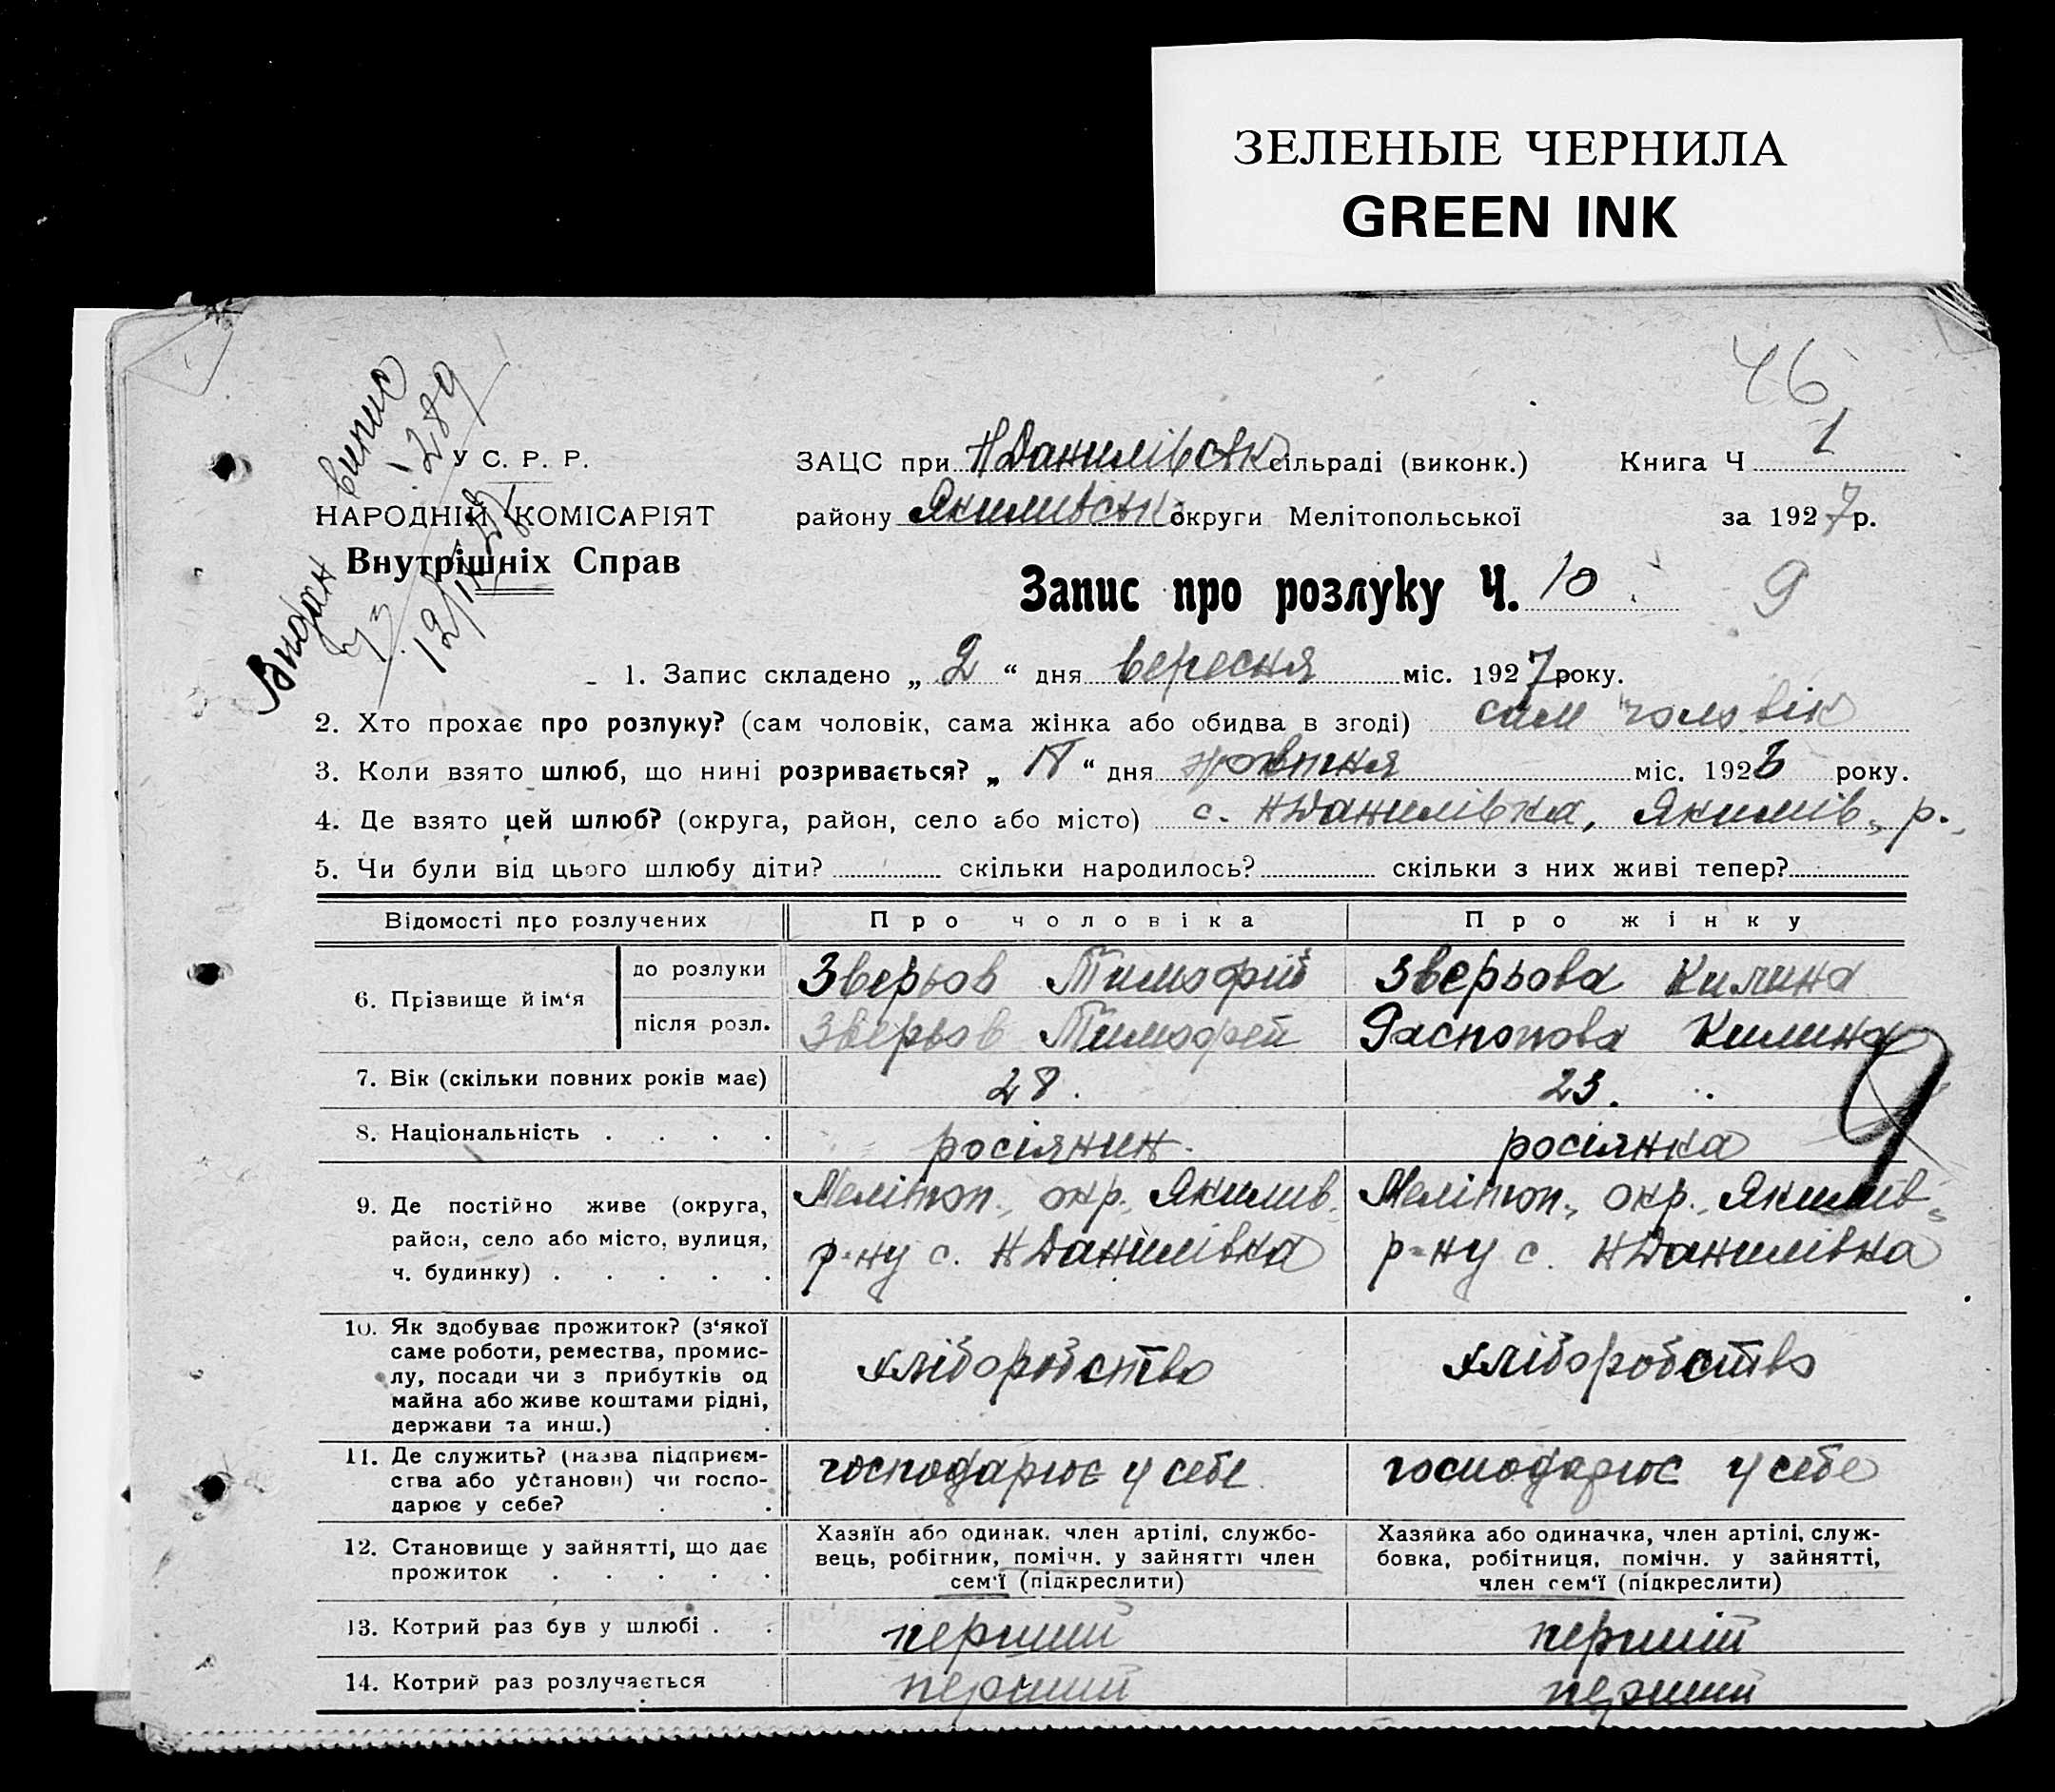 ЗЕЛЕНЫЕ ЧЕРНИЛА
GREEN INK
46
Видан випис
289
У С. Р. Р.
НАРОДНІЙ КОМІСАРІЯТ
Внутрішніх Справ
ЗАЦС при Н Данилівськ сільраді (виконк.)
Книга Ч 1
району Якимівськ округи Мелітопольської
за 1927 р.
Запис про розлуку Ч. 10.
9
1. Запис складено „ 2 “ дня вересня міс. 1927 року.
2. Хто прохає про розлуку? (сам чоловік, сама жінка або обидва в згоді) сам чоловік
3. Коли взято шлюб, що нині розривається? „ “ дня жовтня міс. 192 року.
4. Де взято цей шлюб? (округа, район, село або місто) с. НДанилівка, Якимів. р.
5. Чи були від цього шлюбу діти? скільки народилось? скільки з них живі тепер?
Відомості про розлучених
Про чоловіка
Про жінку
6. Прізвище й ім‘я
до розлуки
Зверьов Тимофій
Зверьова Килина
після розл.
Зверьов Тимофей
Распопова Килина
9
7. Вік (скільки повних років має)
28.
23.
8. Національність . . . .
росіянин.
росіянка
9. Де постійно живе (округа,
район, село або місто, вулиця,
ч. будинку) . . . . .
Мелітоп., окр., Якимив.
р-ну с. НДанилівка
Мелітоп., окр., Якимив.
р-ну с. НДанилівка
10. Як здобуває прожиток? (з‘якої
саме роботи, ремества, промис-
лу, посади чи з прибутків од
майна або живе коштами рідні,
держави та инш.) .
хліборобство
хліборобство
11. Де служить? (назва підприєм-
ства або установи) чи госпо-
дарює у себе? . .
господарює у себе
господарює у себе
12. Становище у зайнятті, що дає
прожиток . . . . .
Хазяїн або одинак, член артілі, службо-
вець, робітник, помічн. у зайнятті член
сем‘ї (підкреслити)
Хазяйка або одиначка, член артілі, служ-
бовка, робітниця, помічн. у зайнятті,
член сем‘ї (підкреслити)
13. Котрий раз був у шлюбі . .
перший
перший
14. Котрий раз розлучається
перший
перший